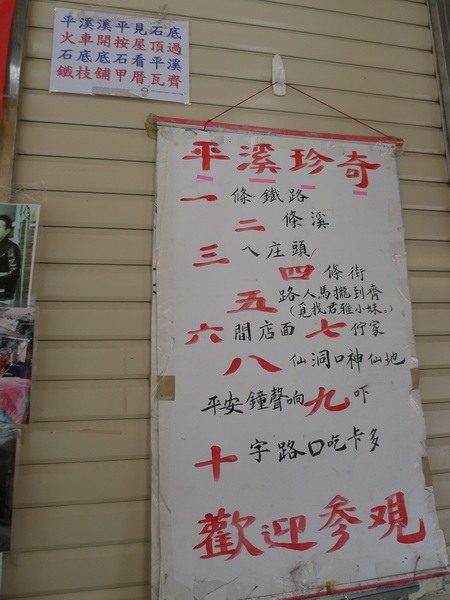 平溪溪平見石底
火車開按屋頂過
石底底石看平溪
鐵枝舖甲厝瓦齊
平溪珍奇
一條鐵路
二條溪
三ㄟ庄頭
四條街
五路人馬攏到齊
(覓找君雅小妹。)
六間店面七佇家
八仙洞口神仙地
平安鐘聲响九吓
十字路口吃卡多
歡迎參观